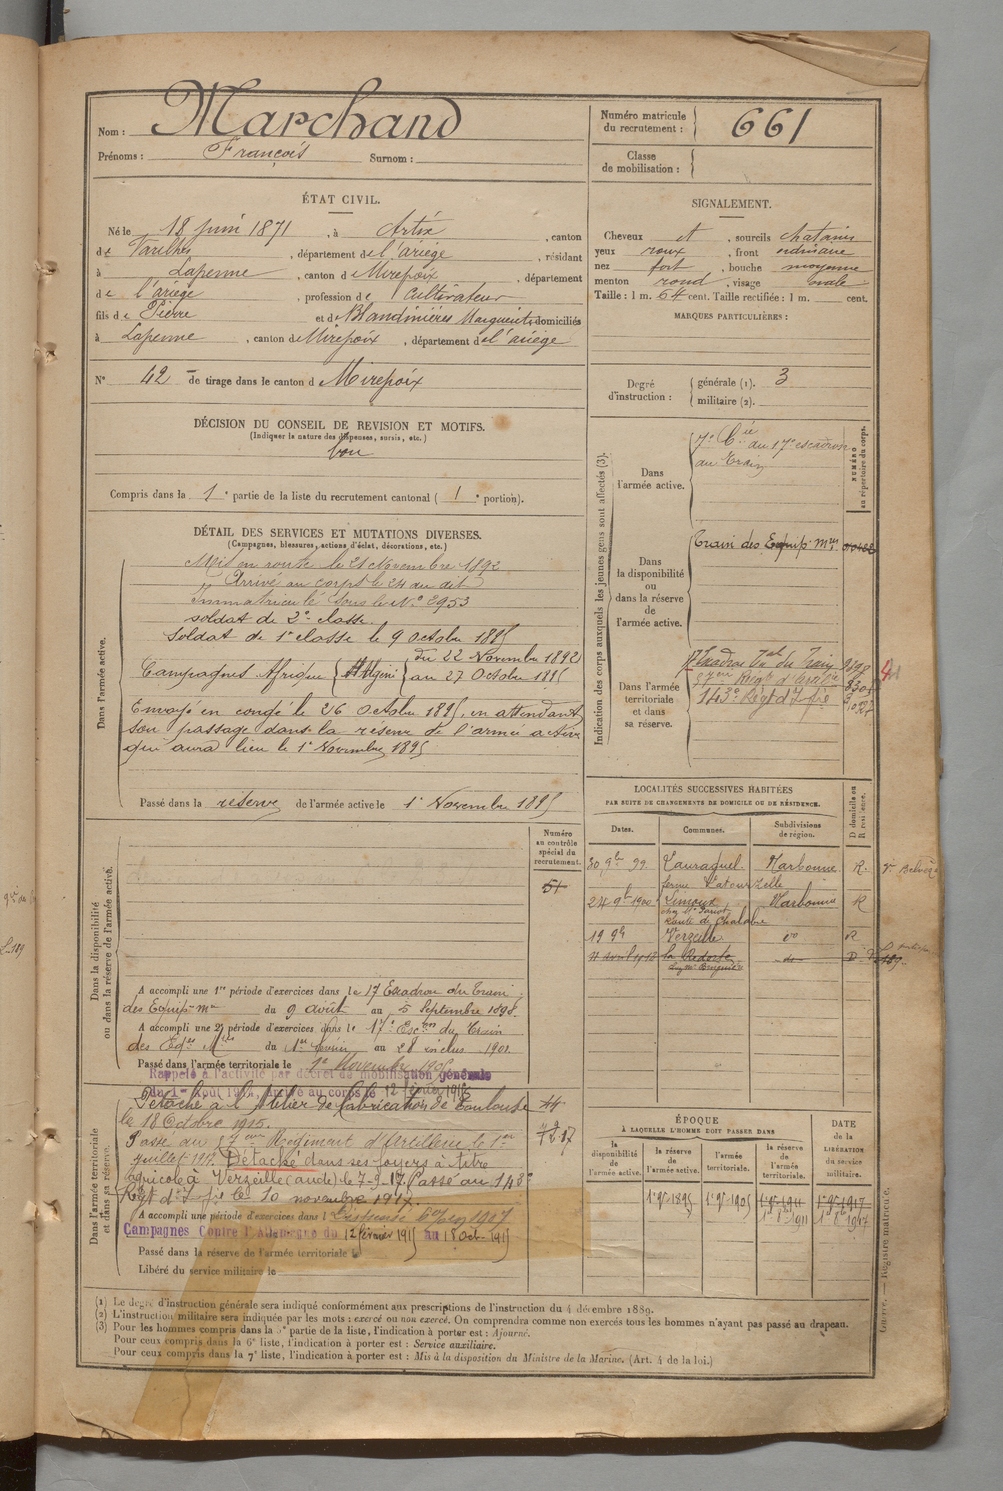 Nom : Marchand
Prénoms : François Surnom :
Numéro matricule du recrutement : 661
Classe de mobilisation :
ÉTAT CIVIL.
Né le 18 juin 1871, à Artix, canton
de Varilhes, département de l'ariège, résidant
à Lapenne, canton de Mirepoix, département
de l'ariège, profession de Cultivateur
fils de Pierre et de Blandinières Marguerite, domiciliés
à Lapenne, canton de Mirepoix, département de l'ariège
N° 42 de tirage dans le canton d Mirepoix
DÉCISION DU CONSEIL DE REVISION ET MOTIFS.
(Indiquer la nature des dispenses, sursis, etc.)
bon
Compris dans la 1e partie de la liste du recrutement cantonal ( 1e portion).
SIGNALEMENT.
Cheveux et, sourcils chatains
yeux roux, front ordinaire
nez fort, bouche moyenne
menton rond, visage ovale
Taille : 1 m. 64 cent. Taille rectifiée : 1 m. cent.
MARQUES PARTICULIÈRES :
Degré d'instruction :
générale (1). 3
militaire (2).
DÉTAIL DES SERVICES ET MUTATIONS DIVERSES.
(Campagnes, blessures, actions d'éclat, décorations, etc.)
Dans l'armée active.
Mis en route le 21 Novembre 1892
Arrivé au corps le 24 au dit
Immatriculé sous le N° 2953
soldat de 2e classe
Soldat de 1e classe le 9 Octobre 1895
Campagnes Afrique { Algérie } du 22 Novembre 1892
au 27 Octobre 1895
Envoyé en congé le 26 Octobre 1895, en attendant
son passage dans la réserve de l'armée active
qui aura lieu le 1e Novembre 1895
Passé dans la réserve de l'armée active le 1e Novembre 1895
Indication des corps auxquels les jeunes gens sont affectés (3).
NUMÉRO au répertoire du corps.
Dans l'armée active.
7e Cie au 17e escadron
au Train
Dans la disponibilité ou dans la réserve de l'armée active.
Train des Equip. Mres
Dans l'armée territoriale et dans sa réserve.
17 Escadron Tal du Train
143e Régt d'Infie
LOCALITÉS SUCCESSIVES HABITÉES
PAR SUITE DE CHANGEMENTS DE DOMICILE OU DE RÉSIDENCE.
Dates. Communes. Subdivisions de région. D domicile ou R résidence.
30 9bre 99 Lauraguel Narbonne R.
24 9bre 1900 Limoux Narbonne R
route de Chalabre
Verzeille do R
4 avril 1918 la Redorte do D
Numéro au contrôle spécial du recrutement.
51
Dans la disponibilité ou dans la réserve de l'armée active.
A accompli une 1re période d'exercices dans le 17 Escadron du Train
des Equip. Mres du 9 août au 5 Septembre 1898.
A accompli une 2e période d'exercices dans le 17e Escon du Train
des Eqes Mres du 1er février au 28 inclus 1901.
Passé dans l'armée territoriale le 1er Novembre 1905
Rappelé à l'activité par décret de mobilisation générale
du 1er Août 1914. Arrivé au corps le 12 février 1915
Dans l'armée territoriale et dans sa réserve.
Détaché à l'Atelier de fabrication de Toulouse
le 18 Octobre 1915.
Passé au 57eme Régiment d'Artillerie le 1er
juillet 1917. Détaché dans ses foyers à titre
agricole à Verzeille (aude) le 7-9-17. Passé au 143e
Régt d'Infie le 10 novembre 1917
A accompli une période d'exercices dans l Dispensé 1907
Campagnes Contre l'Allemagne du 12 février 1915 au 18 Oct. 1915
Passé dans la réserve de l'armée territoriale le
Libéré du service militaire le
ÉPOQUE
À LAQUELLE L'HOMME DOIT PASSER DANS
la disponibilité de l'armée active. la réserve de l'armée active. l'armée territoriale. la réserve de l'armée territoriale. DATE de la LIBÉRATION du service militaire.
1er 9bre 1895 1er 9bre 1905 1er 9bre 1911 1er 9bre 1917
(1) Le degré d'instruction générale sera indiqué conformément aux prescriptions de l'instruction du 4 décembre 1889.
(2) L'instruction militaire sera indiquée par les mots : exercé ou non exercé. On comprendra comme non exercés tous les hommes n'ayant pas passé au drapeau.
(3) Pour les hommes compris dans la 5e partie de la liste, l'indication à porter est : Ajourné.
Pour ceux compris dans la 6e liste, l'indication à porter est : Service auxiliaire.
Pour ceux compris dans la 7e liste, l'indication à porter est : Mis à la disposition du Ministre de la Marine. (Art. 4 de la loi.)
Registre matricule.